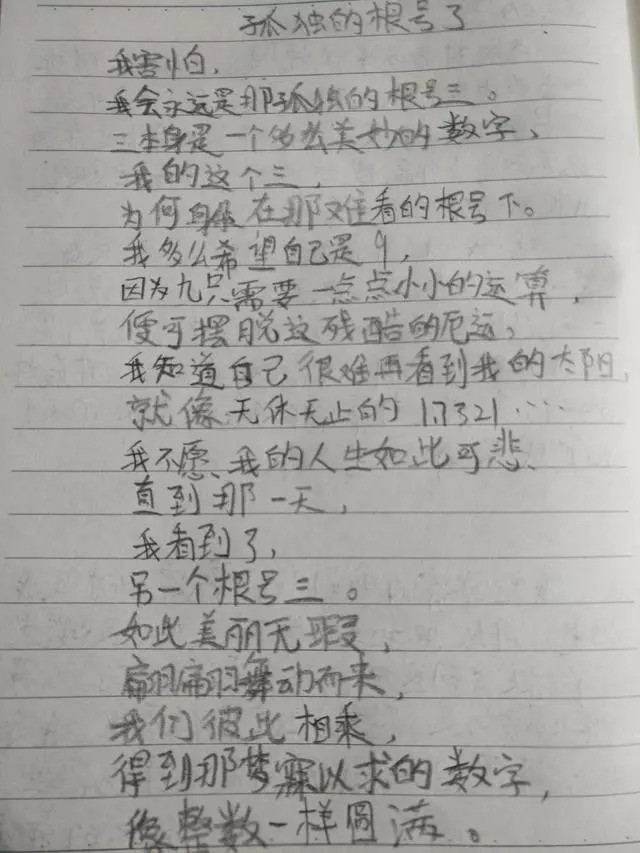 孤独的根号3
我害怕,
我会永远是那孤独的根号三。
三本身是一个多么美妙的数字、
我的这个三,
为何身处在那难看的根号下。
我多么希望自己是9,
因为九只需要一点点小小的运算,
便可摆脱这残酷的厄运,
我知道自己很难再看到我的太阳,
就像无休无止的1.7321……
我不愿、我的人生如此可悲、
直到那一天,
我看到了,
另一个根号三。
如此美丽无瑕,
翩翩舞动而来,
我们彼此相乘,
得到那梦寐以求的数字,
像整数一样圆满。